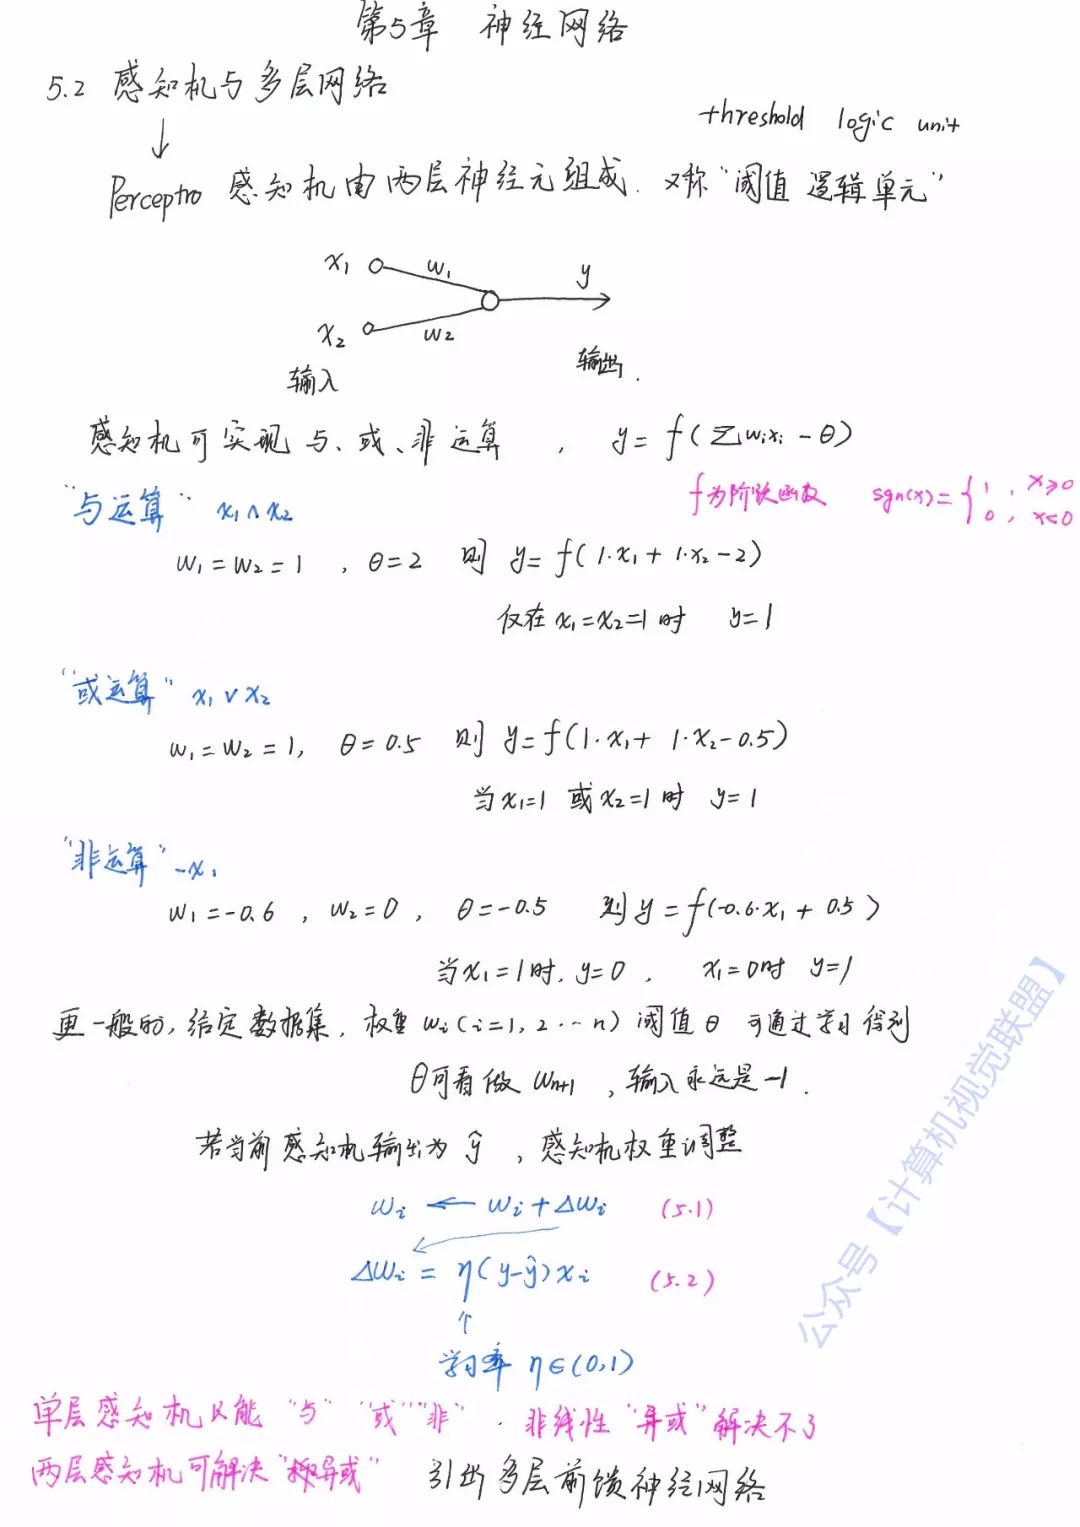 第5章 神经网络
5.2 感知机与多层网络
threshold logic unit
Perceptro 感知机由两层神经元组成. 又称"阈值逻辑单元"
x₁ w₁ y
x₂ w₂
输入 输出.
感知机可实现与、或、非运算 , y = f(Σwᵢxᵢ - θ)
"与运算" x₁∧x₂ f为阶跃函数 sgn(x)={1, x≥0
0, x<0
w₁=w₂=1 , θ=2 则 y=f(1·x₁+1·x₂-2)
仅在x₁=x₂=1时 y=1
"或运算" x₁∨x₂
w₁=w₂=1, θ=0.5 则 y=f(1·x₁+1·x₂-0.5)
当x₁=1或x₂=1时 y=1
"非运算" -x₁
w₁=-0.6 , w₂=0 , θ=-0.5 则y=f(-0.6·x₁+0.5)
当x₁=1时, y=0 , x₁=0时 y=1
更一般的, 给定数据集, 权重wᵢ(i=1,2…n) 阈值θ 可通过学习得到
θ可看做wₙ₊₁ , 输入永远是-1.
若当前感知机输出为ŷ , 感知机权重调整
wᵢ ← wᵢ+Δwᵢ (5.1)
Δwᵢ = η(y-ŷ)xᵢ (5.2)
学习率 η∈(0,1)
单层感知机只能"与""或""非" . 非线性"异或"解决不了
两层感知机可解决"异或" 引出多层前馈神经网络
公众号【计算机视觉联盟】